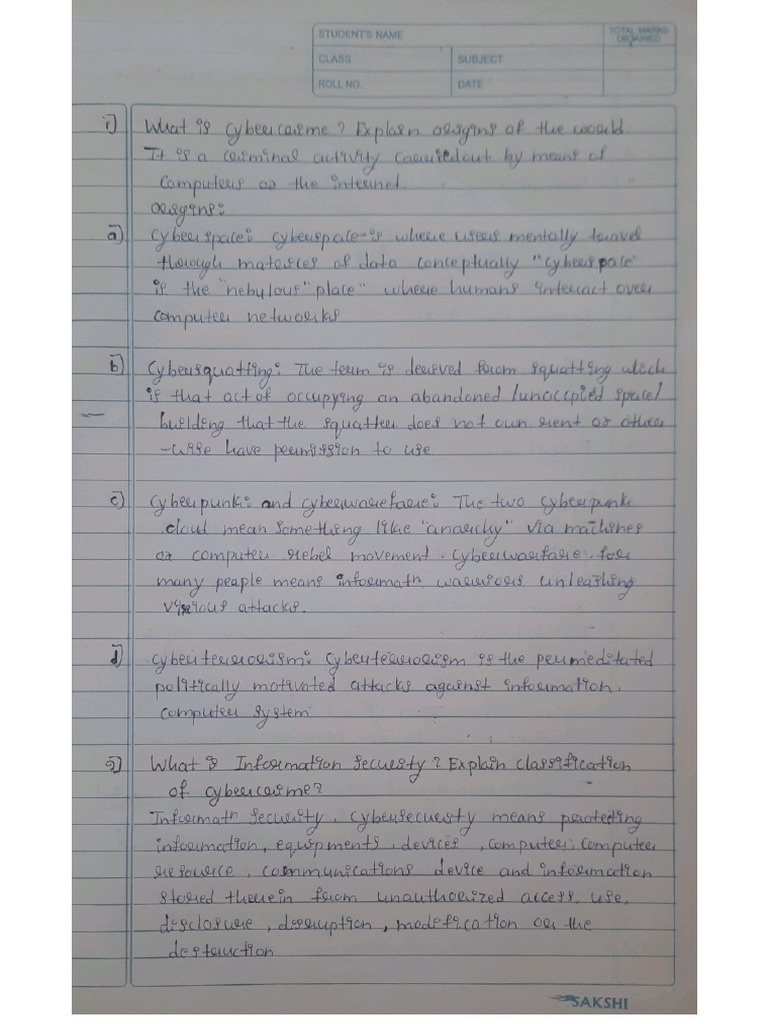 STUDENT'S NAME
TOTAL MARKS
OBTAINED
CLASS
SUBJECT
ROLL NO.
DATE
1) What is cybercrime? Explain origins of the world
It is a criminal activity carriedout by means of
computers or the internet.
origins:
a) Cyberspace: cyberspace is where users mentally travel
through matrices of data conceptually "cyberspace
is the "nebulous "place" where humans interact over
computer networks
b) Cybersquatting: The term is derived from squatting which
is that act of occupying an abandoned /unoccpied space/
building that the squatter does not own rent or other
-wise have permission to use
c) Cyberpunk: and cyberwarefare: The two cyberpunk
cloud mean something like "anarchy" via machines
or computer rebel movement. Cyberwarfare for
many peaple means informatn warriors unleashing
vicious attacks.
d) Cyberterrorism: Cyberterrorism is the permeditated
politically motivated attacks against information.
computer system
2) What is Information security? Explain classification
of cybercrime?
Informatn security, cybersecurity means protecting
information, equipments, devices, computer. computer
resource, communications device and information
stored therein from unauthorized access, use,
disclosure, disruption, modification or the
destruction
SAKSHI